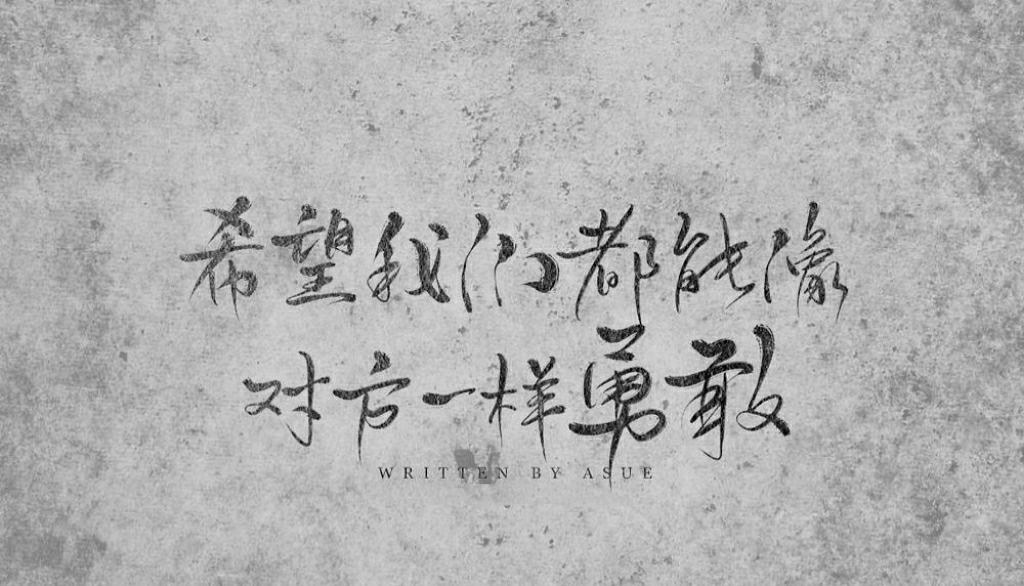 希望我们都能像
对方一样勇敢
WRITTEN BY ASUE